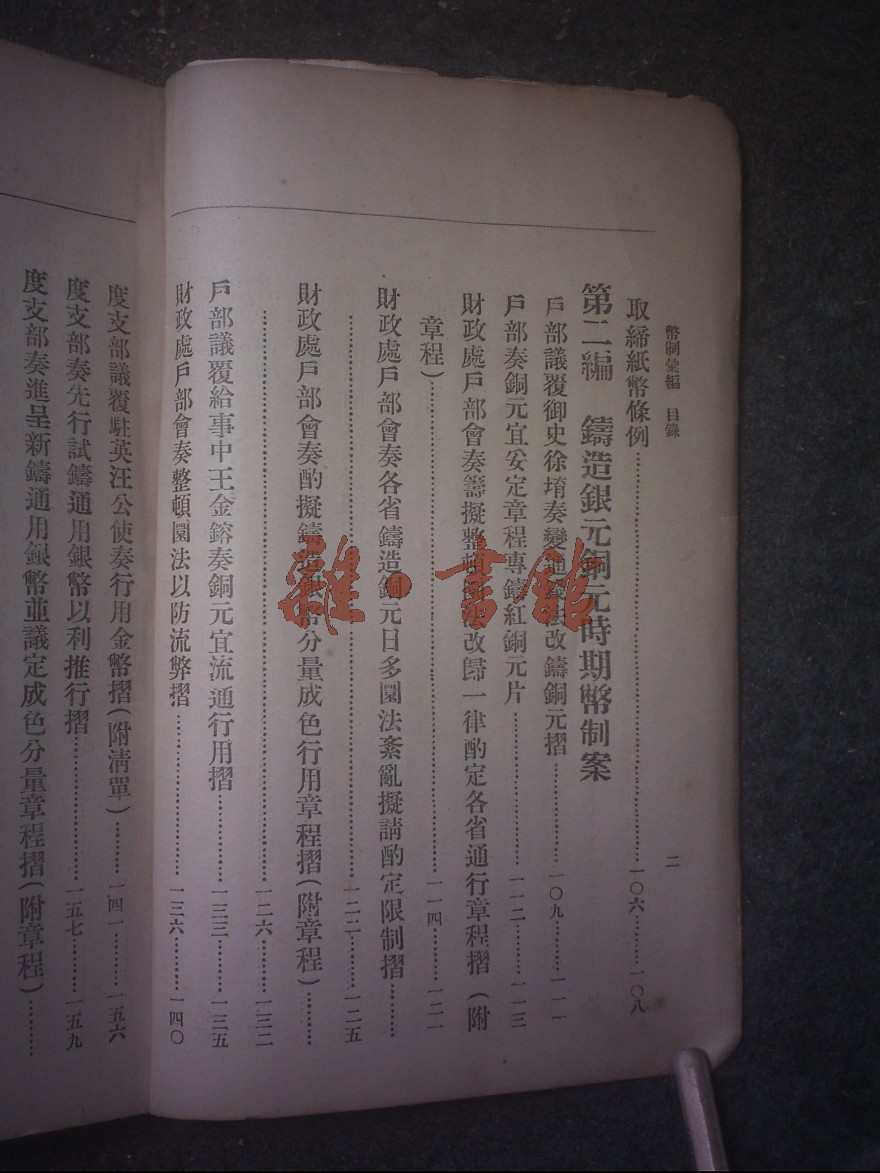 幣制彙編　目錄　二
取締紙幣條例……一〇六……一〇八
第二編　鑄造銀元銅元時期幣制案
戶部議覆御史徐堉奏變通錢法改鑄銅元摺……一〇九……一一一
戶部奏銅元宜妥定章程專鑄紅銅元片……一一二……一一三
財政處戶部會奏籌擬整頓圜法改歸一律酌定各省通行章程摺（附
章程）……一一四……一二一
財政處戶部會奏各省鑄造銅元日多圜法紊亂擬請酌定限制摺……
……一二二……一二五
財政處戶部會奏酌擬鑄造銀幣分量成色行用章程摺（附章程）……
……一二六……一三二
戶部議覆給事中王金鎔奏銅元宜流通行用摺……一三三……一三五
財政處戶部會奏整頓圜法以防流弊摺……一三六……一四〇
度支部議覆駐英汪公使奏行用金幣摺（附清單）……一四一……一五六
度支部奏先行試鑄通用銀幣以利推行摺……一五七……一五九
度支部奏進呈新鑄通用銀幣並議定成色分量章程摺（附章程）……
雜·書館